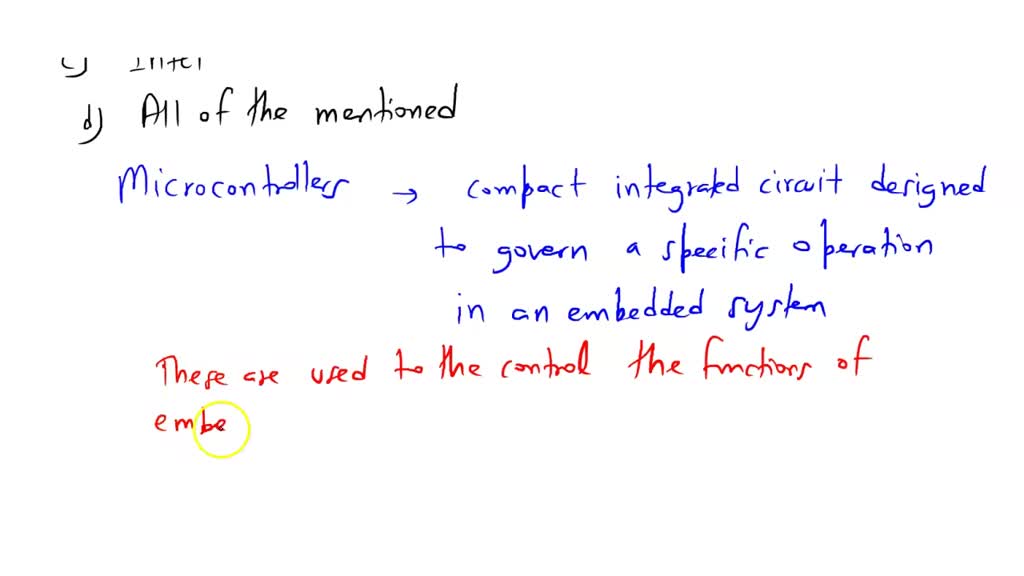 c) Intel
d) All of the mentioned
Microcontrollers → compact integrated circuit designed
to govern a specific operation
in an embedded system
These are used to the control the functions of
embe